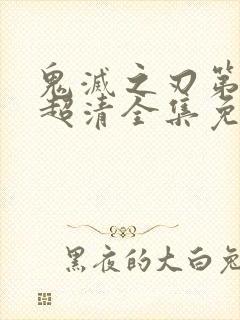 鬼滅之刃第
超清全集免
黑夜的大白兔